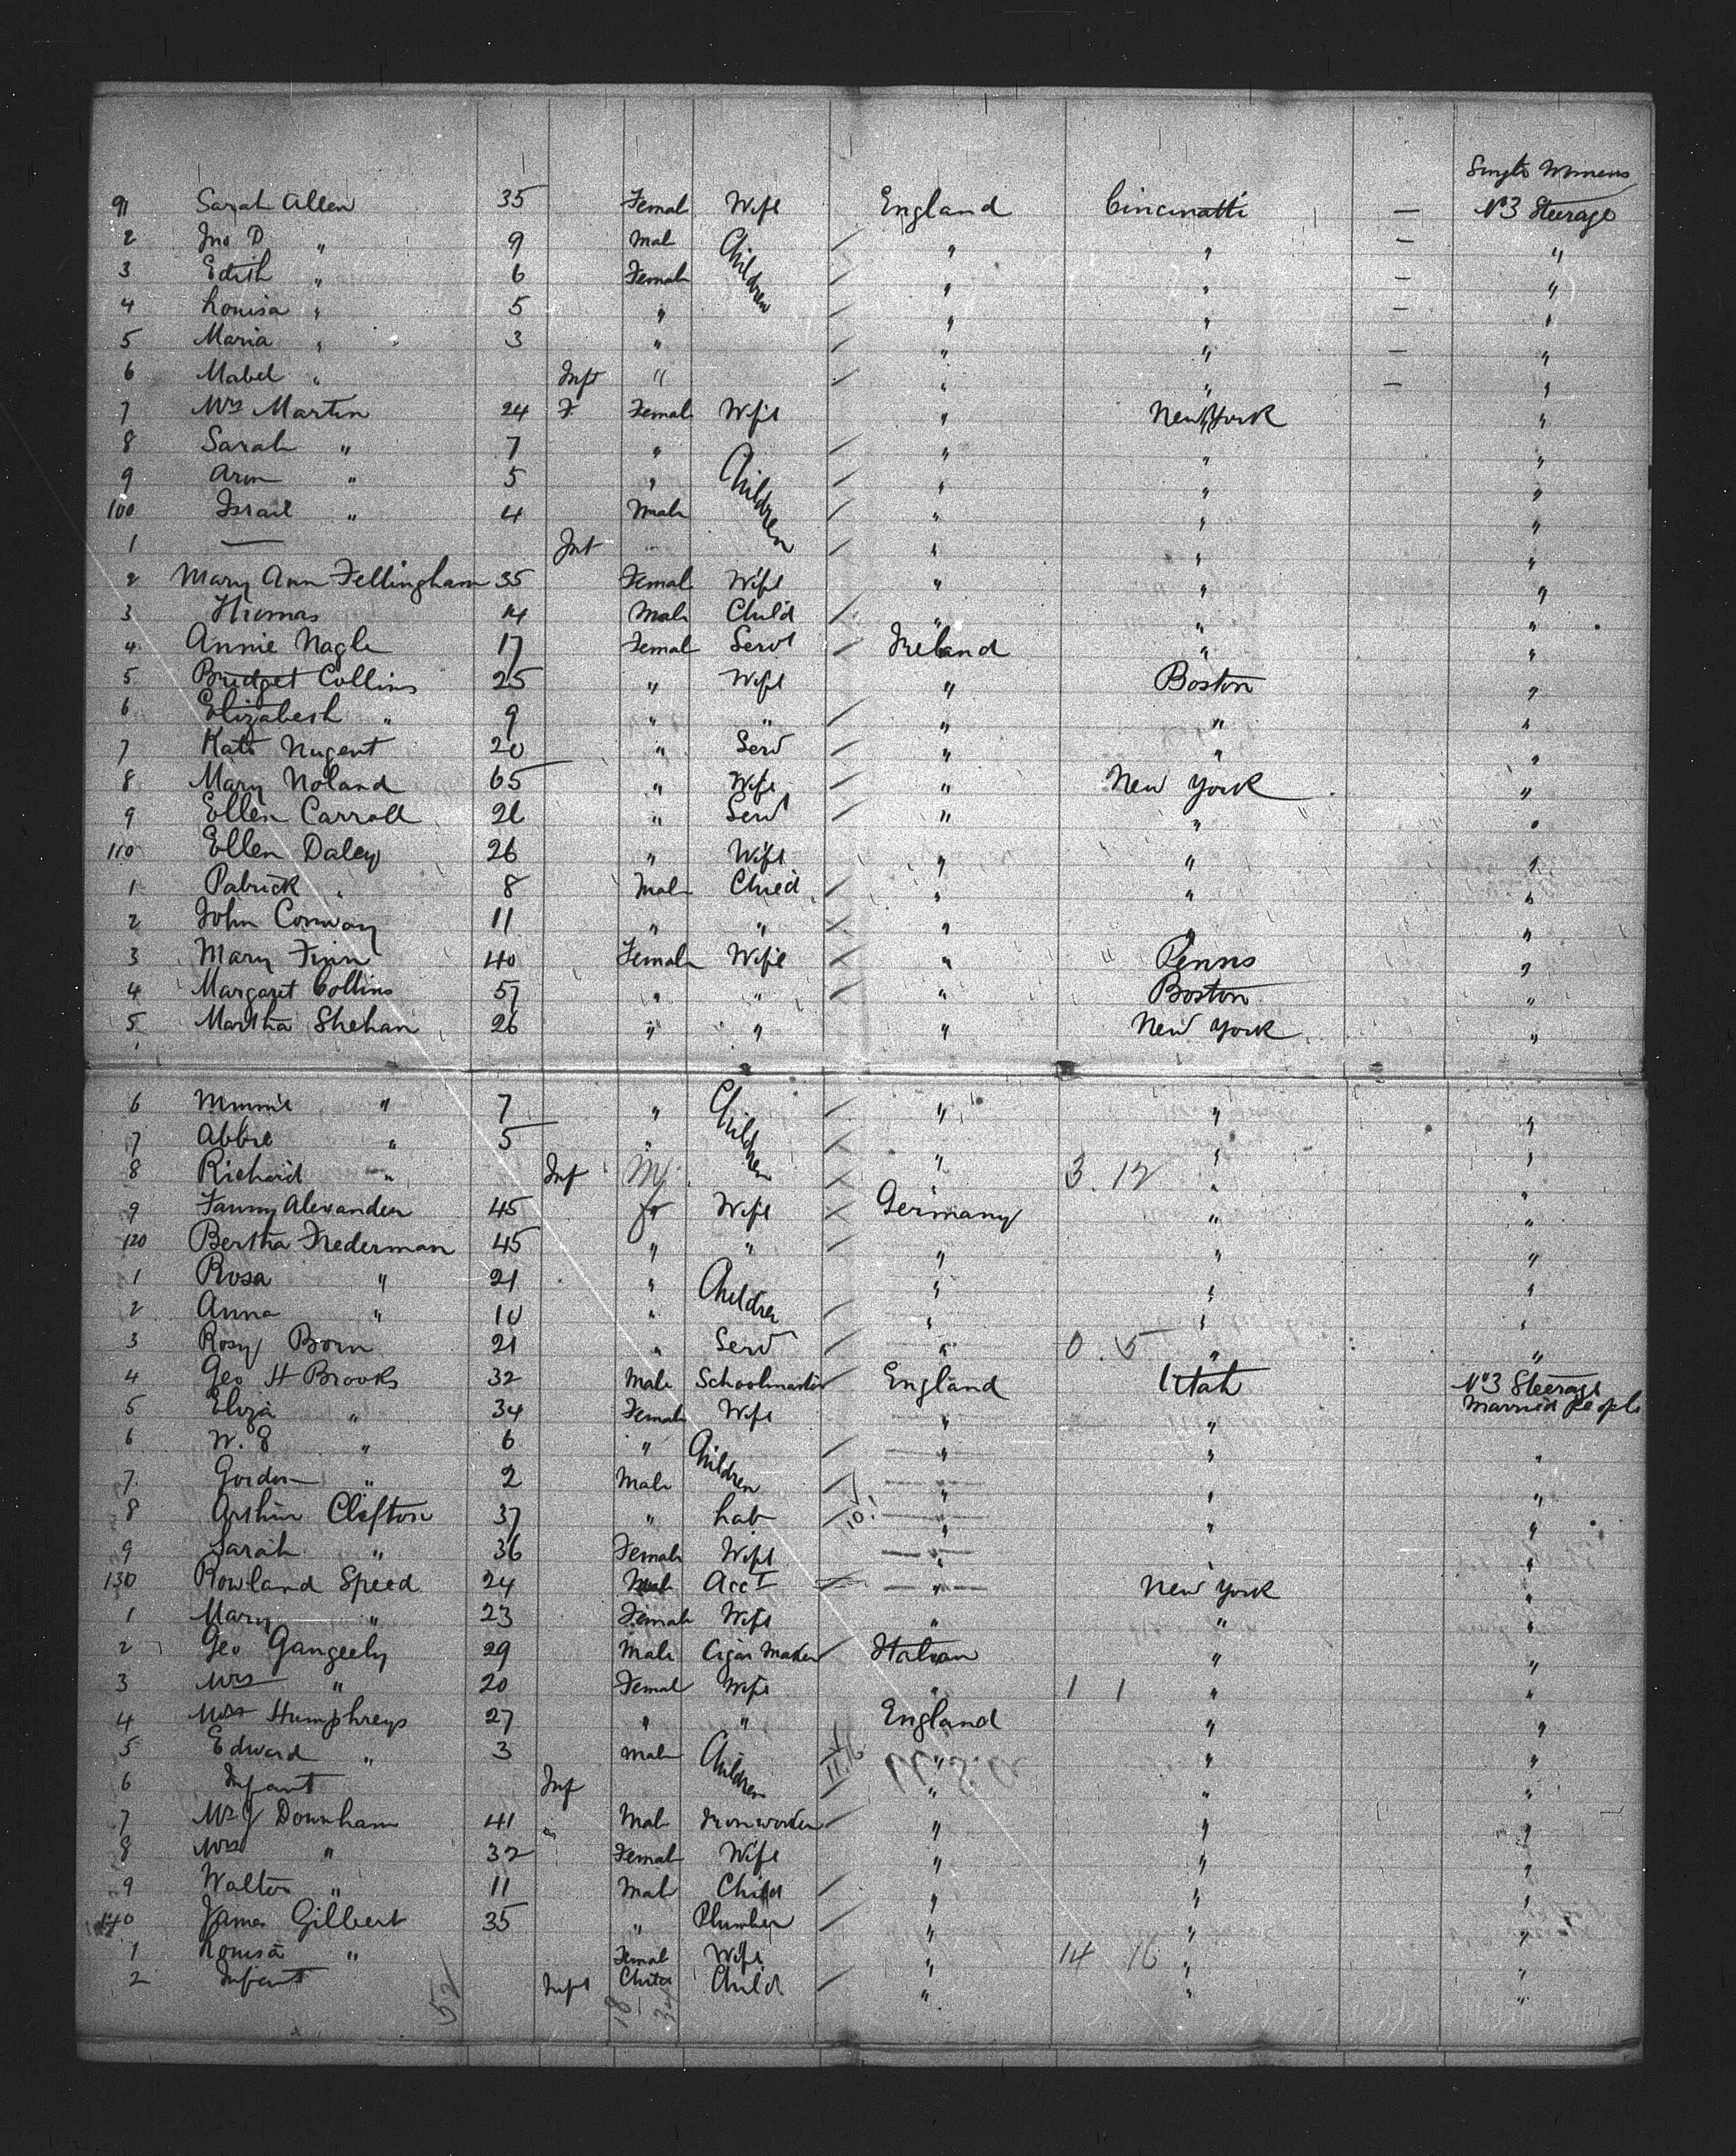 Single Womens
91 Sarah Allen 35 Female Wife England Cincinatti — No 3 Steerage
2 Jno D. " 9 Male Children " " — "
3 Edith " 6 Female " " — "
4 Louisa " 5 " " " — "
5 Maria " 3 " " " — "
6 Mabel " Inft " " " — "
7 Mrs Martin 24 F Female Wife " New York "
8 Sarah " 7 " Children " " "
9 Ann " 5 " " " "
100 Israil " 4 Male " " "
1 — Inf " " " "
2 Mary Ann Fellingham 35 Female Wife " " "
3 Thomas 14 Male Child " " "
4 Annie Nagle 17 Female Servt Ireland " "
5 Bridget Collins 25 " Wife " Boston "
6 Elizabeth " 9 " " " " "
7 Kate Nugent 20 " Serv " " "
8 Mary Noland 65 " Wife " New York "
9 Ellen Carroll " Servt " " "
110 Ellen Daley 26 " Wife " " "
1 Patrick " 8 Male Child " " "
2 John Conway 11 " " " " "
3 Mary Finn 40 Female Wife " Penns "
4 Margaret Collins 57 " " " Boston "
5 Martha Shehan 26 " " " New York "
6 Minnie " 7 " Children " " "
7 Abbie " 5 " " " "
8 Richard " Inf M " 3.12 " "
9 Fanny Alexander 45 Wife Germany " "
120 Bertha Frederman 45 " " " " "
1 Rosa " 21 " Children " " "
2 Anna " 10 " " " "
3 Rosy Born 21 " Serv " 0.5 " "
4 Geo H Brooks 32 Male Schoolmaster England Utah No 3 Steerage
5 Eliza " 34 Female Wife " " Married People
6 W. E " 6 " Children " " "
7 Gordon " 2 Male " " "
8 Arthur Clifton 37 " Lab 10 " " "
9 Sarah " 36 Female Wife " " "
130 Rowland Speed 24 Male Acct " New York "
1 Mary " 23 Female Wife " " "
2 Geo Gangeely 29 Male Cigar Maker Italian " "
3 Mrs " 20 Female Wife " 1 1 " "
4 Mrs Humphreys 27 " " England " "
5 Edward " 3 Male Children U.S.A " "
6 Infant Inf " " "
7 Mr J Downham 41 Male Ironworker " " "
8 Mrs " 32 Female Wife " " "
9 Walter " 11 Male Child " " "
140 James Gilbert 35 " Plumber " " "
1 Louisa " Female Wife " 14 16 " "
2 Infant Inft Child Child " " "
52 18 34